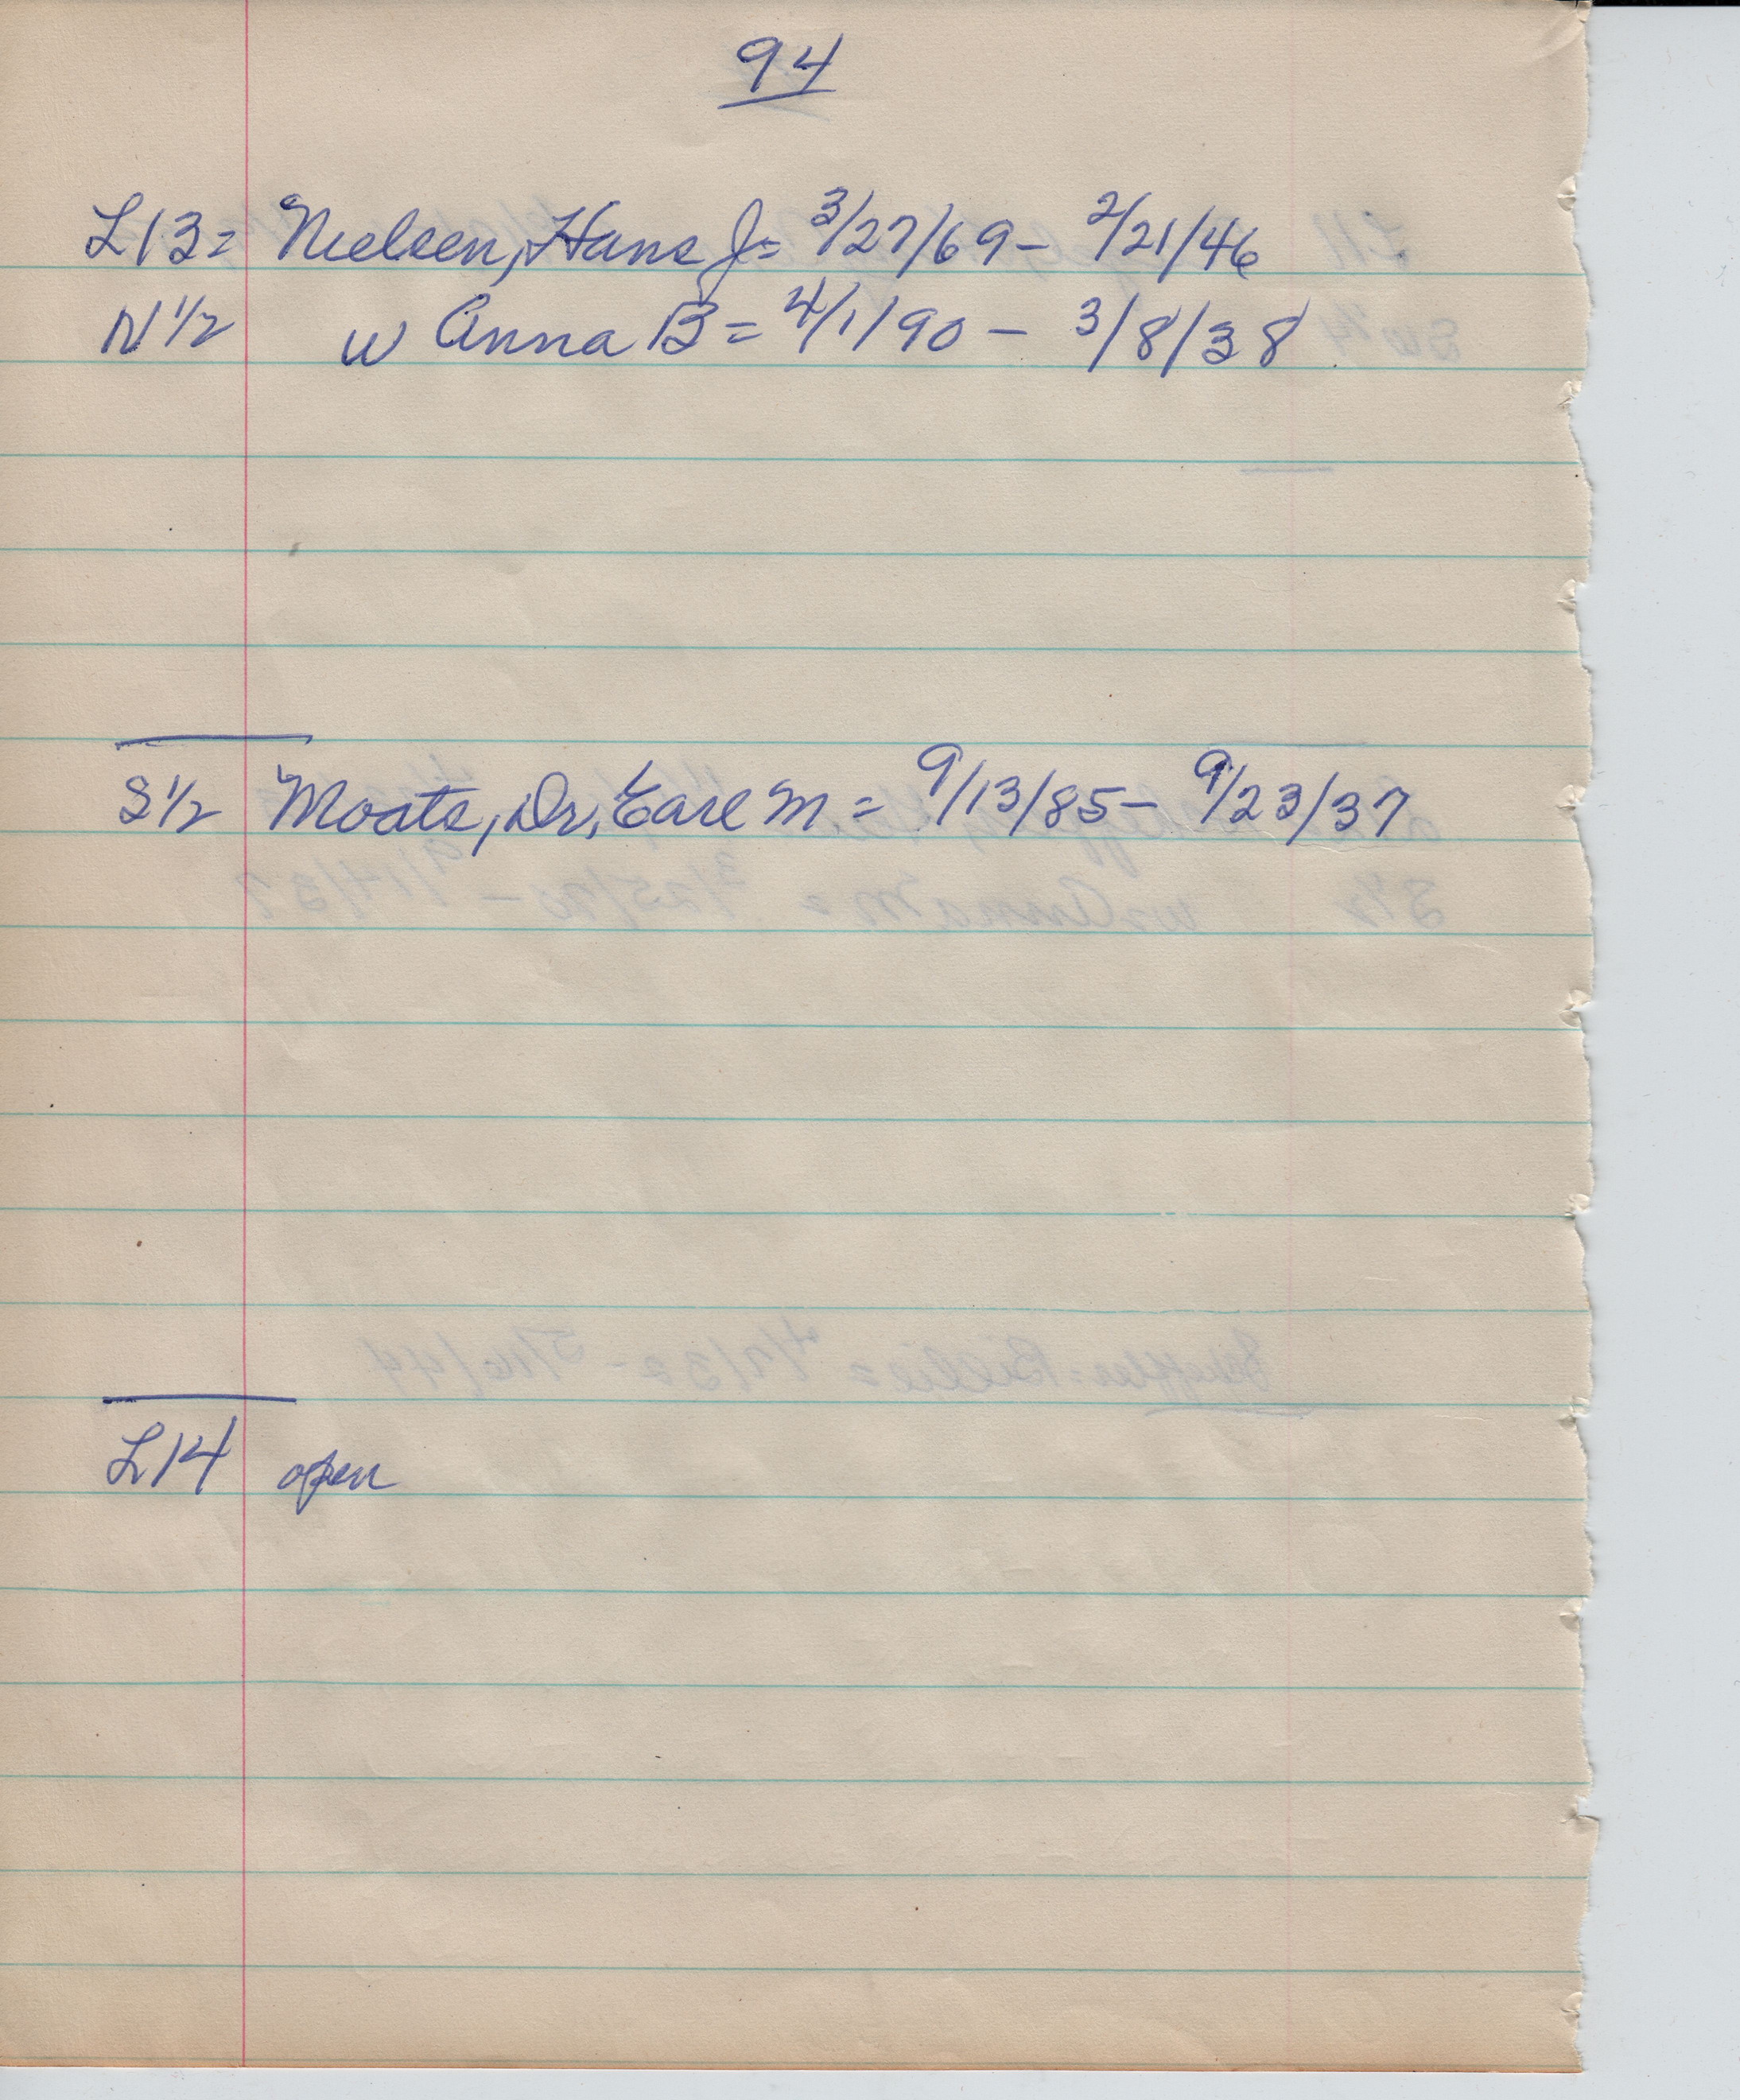 94
L13= Nielsen, Hans J= 3/27/69 - 2/21/46
N 1/2 w Anna B = 4/1/90 - 3/8/38
S 1/2 Moats, Dr, Earl M = 9/13/85 - 9/23/37
L14 open